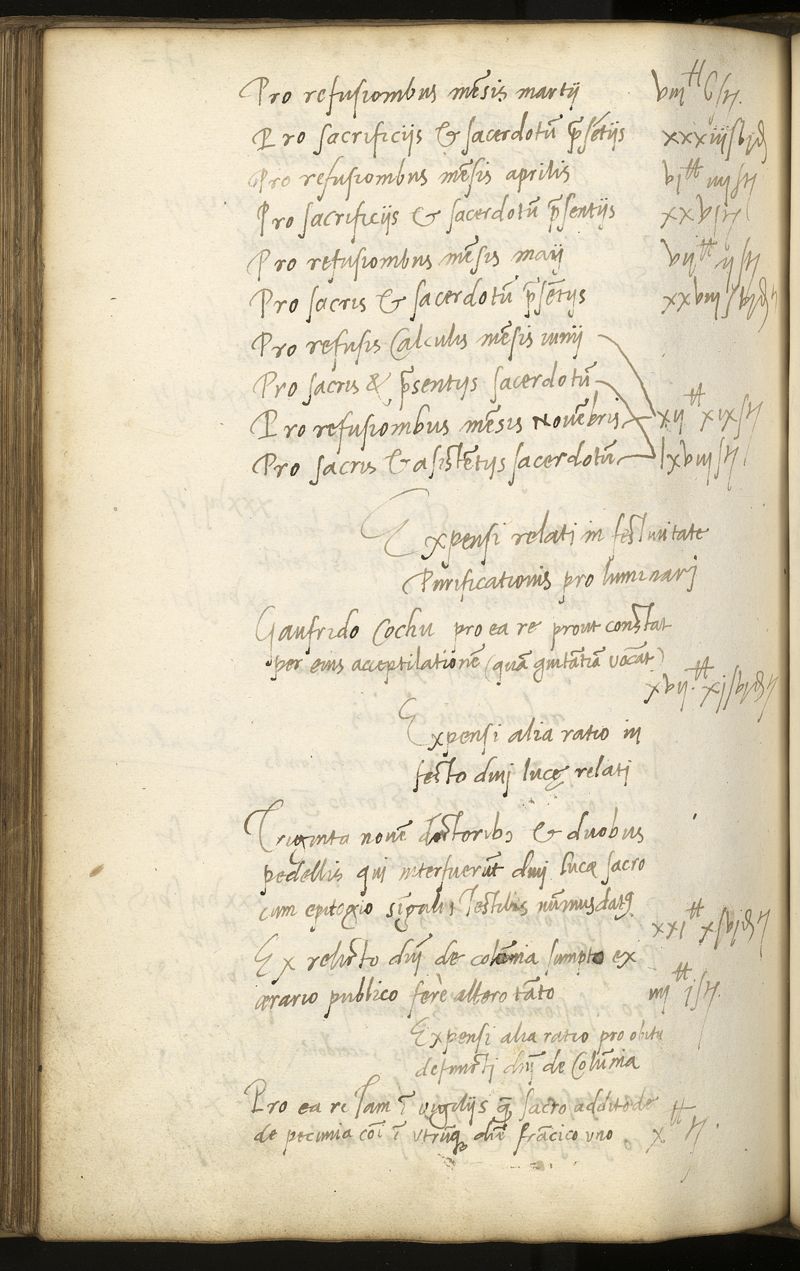 Pro refusionibus mēsis martij viij ₶ sß tz.
Pro sacrificijs & sacerdotū p̄sētijs xxxiijs vjd
Pro refusionibus mēsis aprilis vj ₶ iiijs tz
Pro sacrificijs & sacerdotū p̄sentijs xxvjs tz
Pro refusionibus mēsis maij vij ₶ ijs tz
Pro sacris & sacerdotū p̄sētijs xxviijs vjd tz
Pro refusis Calculis mēsis iunij
Pro sacris & p̄sentijs sacerdotū
Pro refusionibus mēsis Novēbris xij ₶ xixs tz
Pro sacris & asistētijs sacerdotū lxviijs tz
Expensi relati in festivitate
Purificationis pro luminari
Gaufrido Cochu pro ea re prout constat
per eius acceptilationē (quā quitātiā vocāt)
xvij. ₶ xjs vjd tz
Expensi alia ratio in
festo diuj lucę relati
Triginta novē doctorib3 & duobus
pedellis qui interfuerūt diuj lucæ sacro
cum epitogio singulis testibus nūmus datus
xxj ₶ xs vjd tz
Ex relicto dnj de colūmna sumpto ex
ærario publico ferè altero tāto iiij ₶ js tz.
Expensi alia ratio pro obitu
defuncti dnj de Colūmna
Pro ea re tam ī vigilijs q̄ sacro addito de
de pecunia cōi ī vtrūq; diē frācico uno x ₶ tz.